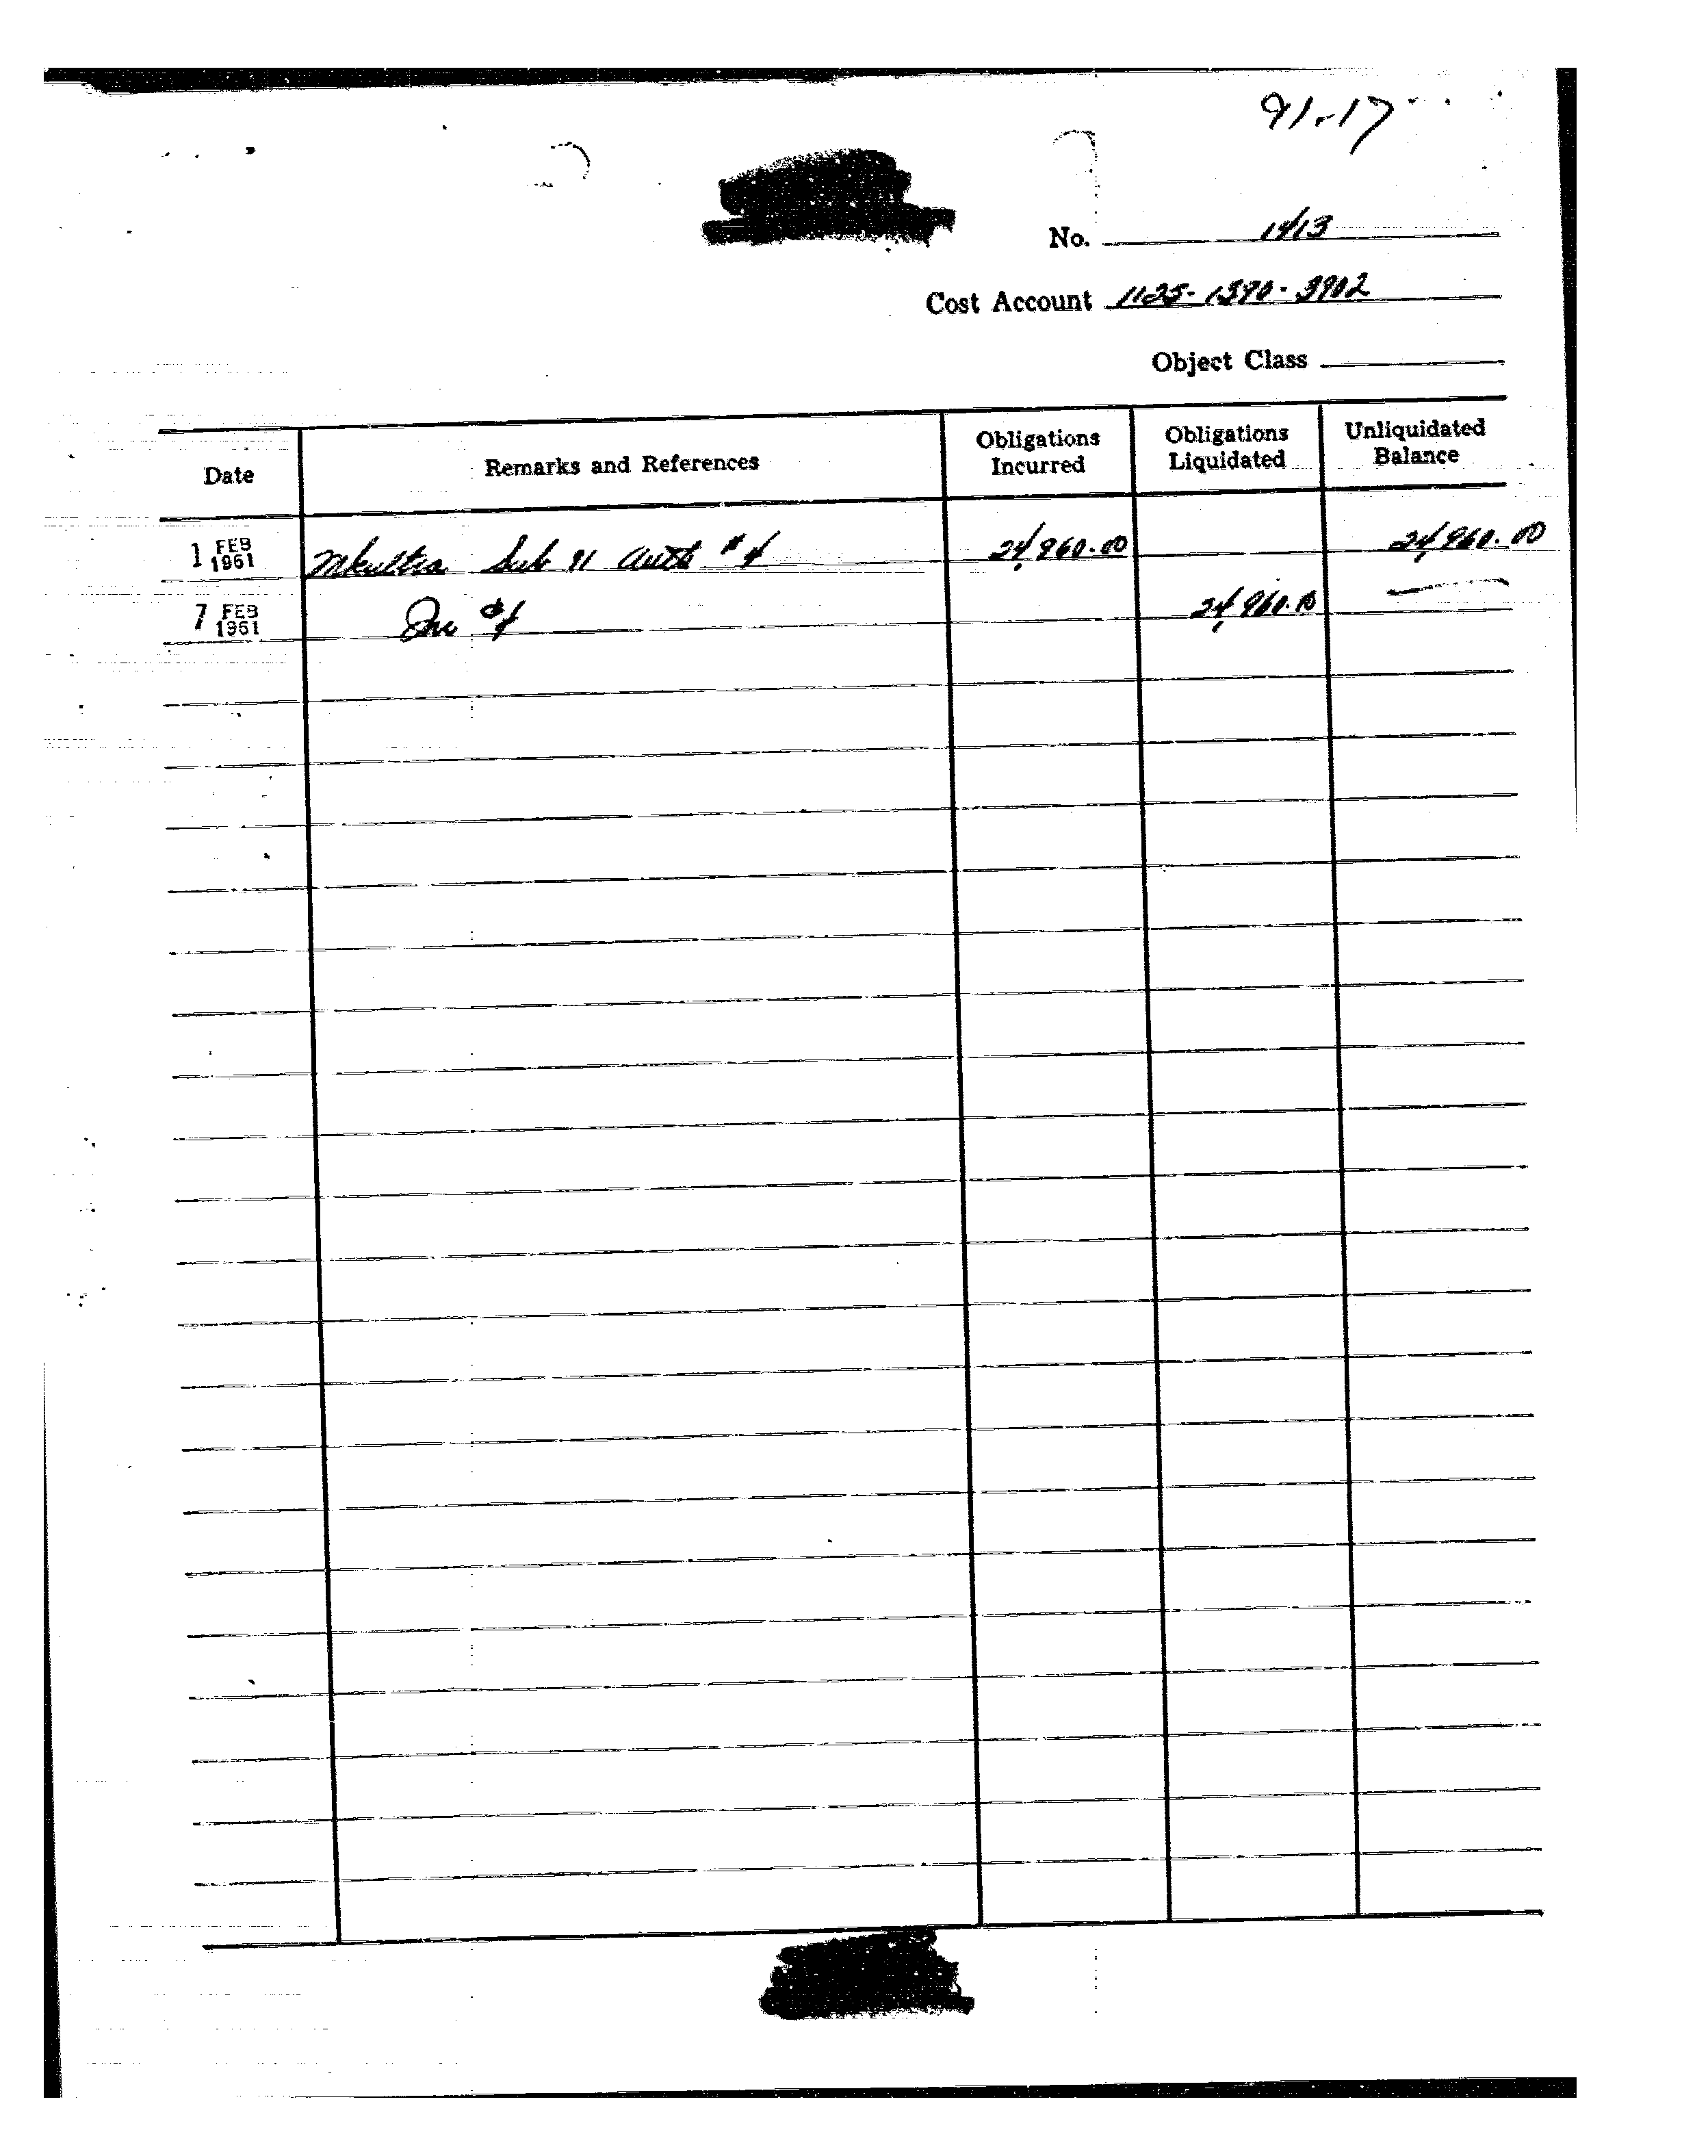 91-17
No. 1413
Cost Account 1125-1390-3902
Object Class
Date Remarks and References Obligations Incurred Obligations Liquidated Unliquidated Balance
1 FEB 1961 Mkultra Sub 91 Auth #4 24,960.00 24,960.00
7 FEB 1961 Inv #4 24,960.00 —